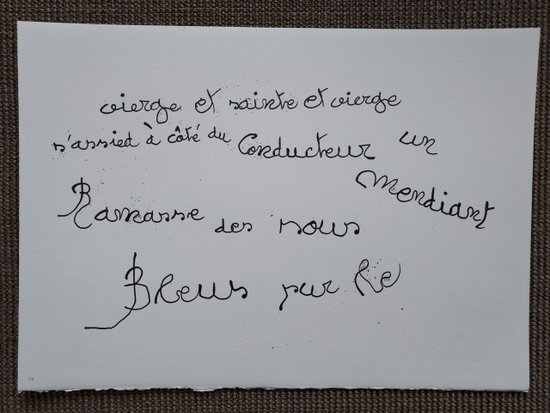 vierge et sainte et vierge
s'assied à côté du Conducteur un
mendiant
Ramasse des sous
Bleus sur le